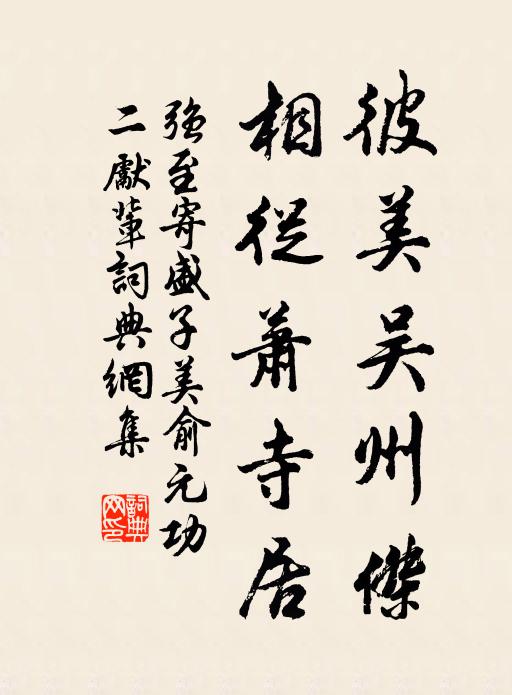 彼美吴州傑
相從蕭寺居
強至寄盛子美俞元功
二獻輩詞典網集
詞典網印